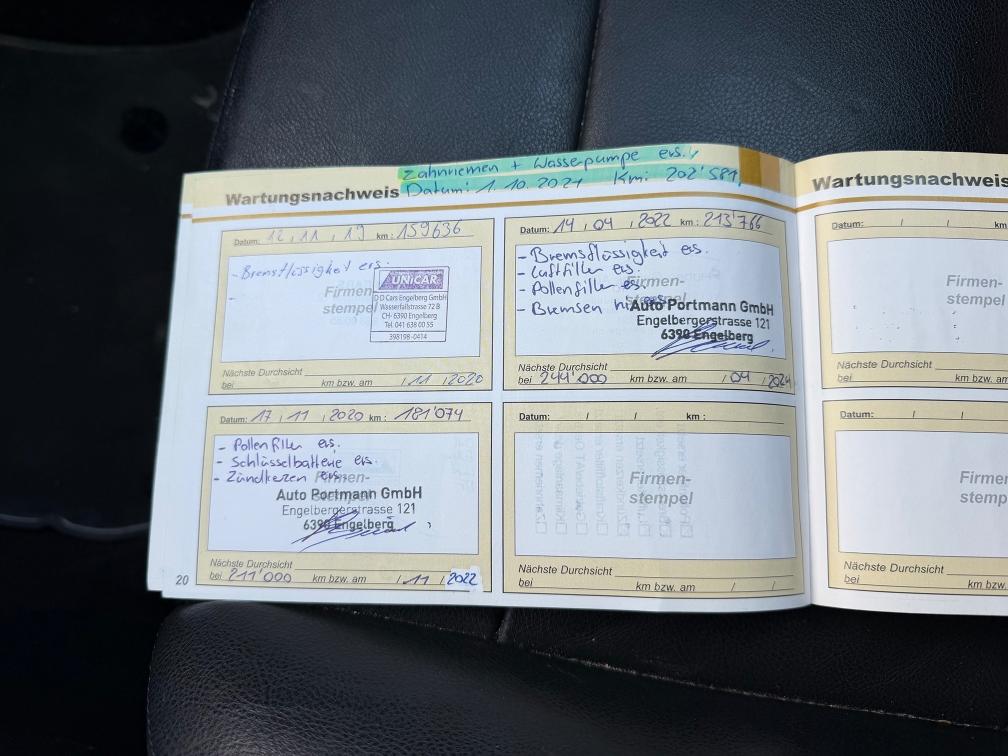 Zahnriemen + Wasserpumpe ers.
Datum: 1.10.2021 Km: 202'581
Wartungsnachweis
Datum: 12 , 11 , 19 km : 159636
- Bremsflüssigkeit ers.
-
Firmen-
stempel
UNiCAR
D D Cars Engelberg GmbH
Wasserfallstrasse 72 B
CH- 6390 Engelberg
Tel. 041 638 00 55
398198 -0414
Nächste Durchsicht
bei km bzw. am / 11 / 2020
Datum: 17 , 11 , 2020 km : 181'074
- Pollenfilter ers.
- Schlüsselbatterie ers.
- Zündkerzen ers.
Firmen-
Auto Portmann GmbH
Engelbergerstrasse 121
6390 Engelberg
Nächste Durchsicht
bei 211'000 km bzw. am / 11 / 2022
20
Datum: 14 , 04 , 2022 km : 213'766
- Bremsflüssigkeit ers.
- Luftfilter ers.
- Pollenfilter ers.
- Bremsen
Firmen-
stempel
Auto Portmann GmbH
Engelbergerstrasse 121
6390 Engelberg
Nächste Durchsicht
bei 244'000 km bzw. am / 04 / 2024
Datum: / / km :
Firmen-
stempel
Nächste Durchsicht
bei km bzw. am / /
Wartungsnachweis
Datum: / / km
Firmen-
stempel
Nächste Durchsicht
bei km bzw. am
Datum: / /
Firmen-
stemp
Nächste Durchsicht
bei km bzw.